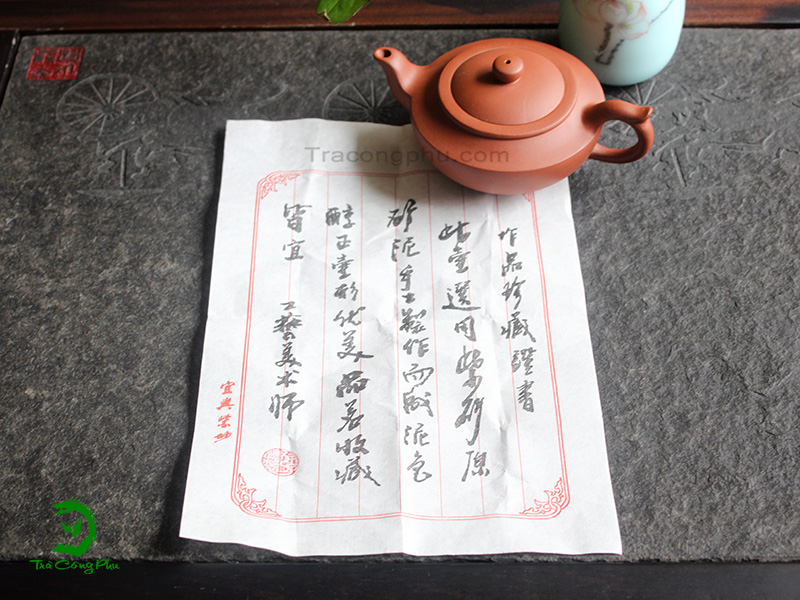 Tracongphu.com
作品珍藏證書
此壺選用紫砂原
砂泥手工製作而成泥色
醇正壺形优美品茗收藏
皆宜 工藝美术师
宜興紫砂
Trà Công Phu